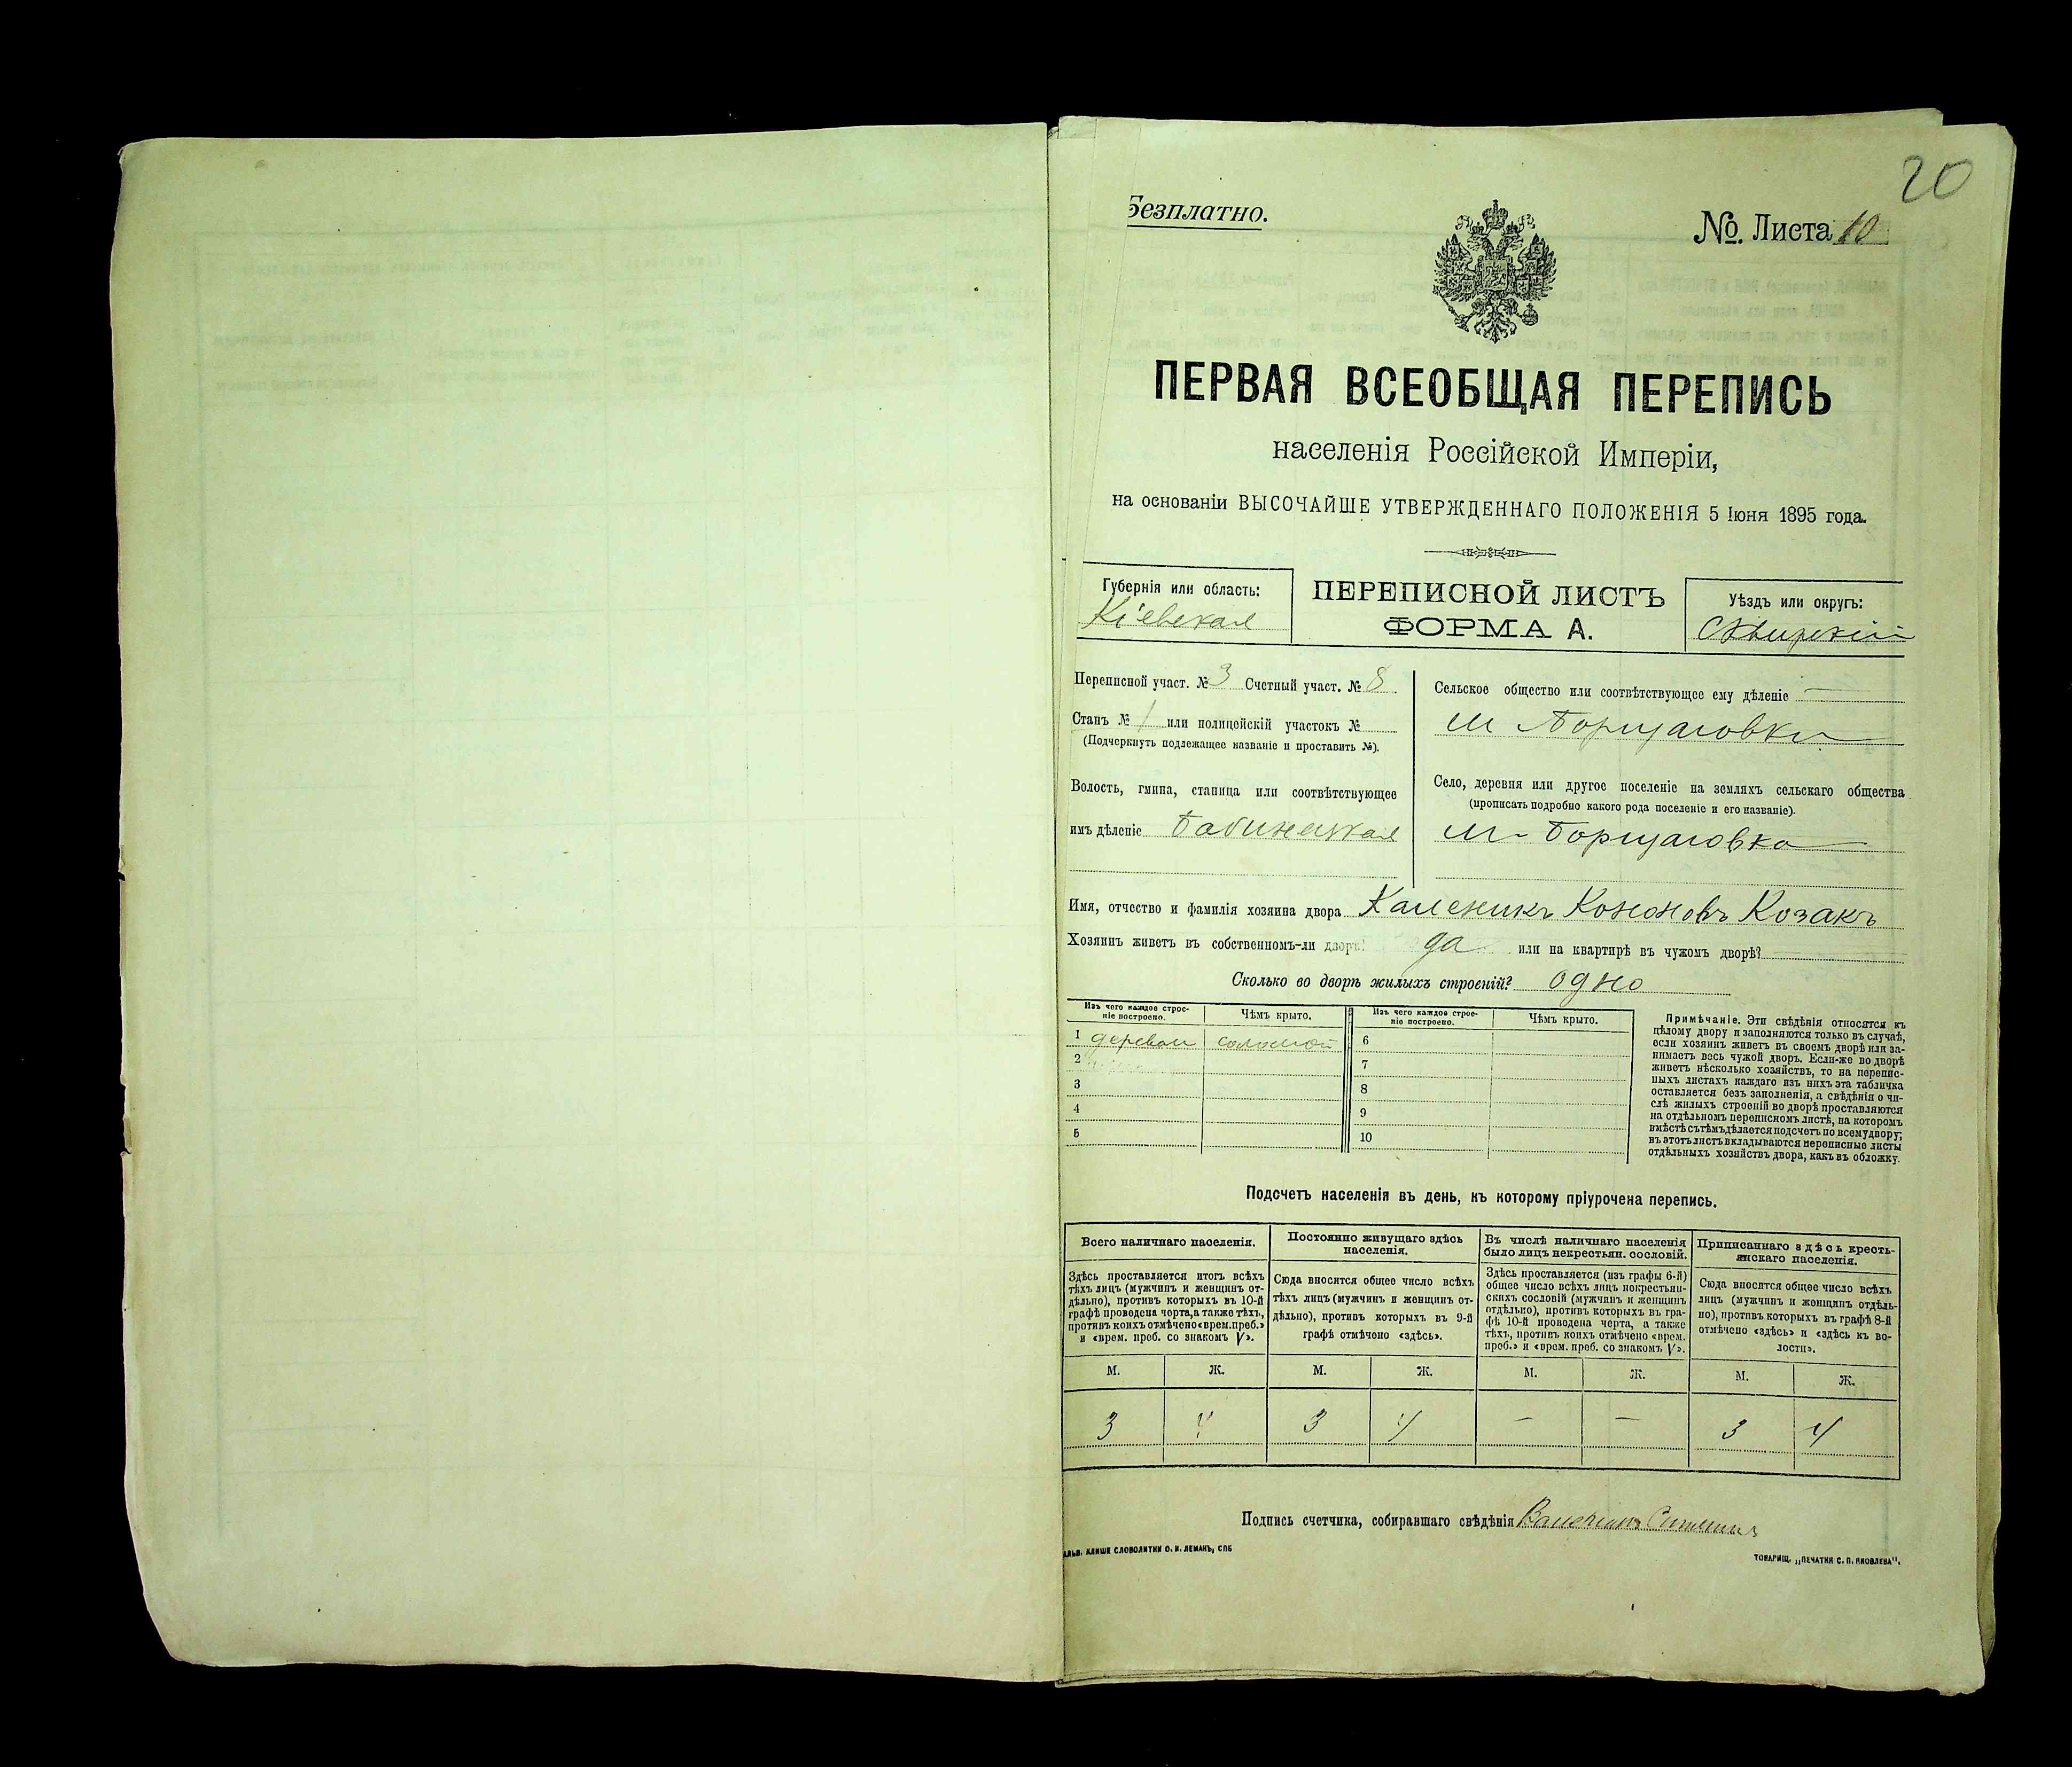 20
Безплатно.
№. Листа 10
ПЕРВАЯ ВСЕОБЩАЯ ПЕРЕПИСЬ
населенія Россійской Имперіи,
на основаніи ВЫСОЧАЙШЕ УТВЕРЖДЕННАГО ПОЛОЖЕНІЯ 5 Іюня 1895 года.
Губернія или область:
Кіевская
ПЕРЕПИСНОЙ ЛИСТЪ
ФОРМА А.
Уѣздъ или округъ:
Сквирскій
Переписной участ. № 3 Счетный участ. № 8
Станъ № 1 или полицейскій участокъ №
(Подчеркнуть подлежащее названіе и проставить №).
Волость, гмина, станица или соотвѣтствующее
имъ дѣленіе Бабинецкая
Сельское общество или соотвѣтствующее ему дѣленіе —
м Борщаговки
Село, деревня или другое поселеніе на земляхъ сельскаго общества
(прописать подробно какого рода поселеніе и его названіе).
м- Борщаговка
Имя, отчество и фамилія хозяина двора Каленикъ Кононовъ Козакъ
Хозяинъ живетъ въ собственномъ-ли дворѣ? да или на квартирѣ въ чужомъ дворѣ?
Сколько во дворѣ жилыхъ строеній? одно
Изъ чего каждое строе-
ніе построено.
Чѣмъ крыто.
Изъ чего каждое строе-
ніе построено.
Чѣмъ крыто.
1 деревян соломой
2
3
4
5
6
7
8
9
10
Примѣчаніе. Эти свѣдѣнія относятся къ
цѣлому двору и заполняются только въ случаѣ,
если хозяинъ живетъ въ своемъ дворѣ или за-
нимаетъ весь чужой дворъ. Если-же во дворѣ
живетъ нѣсколько хозяйствъ, то на перепис-
ныхъ листахъ каждаго изъ нихъ эта табличка
оставляется безъ заполненія, а свѣдѣнія о чи-
слѣ жилыхъ строеній во дворѣ проставляются
на отдѣльномъ переписномъ листѣ, на которомъ
вмѣстѣ съ тѣмъ дѣлается подсчетъ по всему двору;
въ этотъ листъ вкладываются переписные листы
отдѣльныхъ хозяйствъ двора, какъ въ обложку.
Подсчетъ населенія въ день, къ которому пріурочена перепись.
Всего наличнаго населенія.
Здѣсь проставляется итогъ всѣхъ
тѣхъ лицъ (мужчинъ и женщинъ от-
дѣльно), противъ которыхъ въ 10-й
графѣ проведена черта, а также тѣхъ,
противъ коихъ отмѣчено «врем. преб.»
и «врем. преб. со знакомъ V».
Постоянно живущаго здѣсь
населенія.
Сюда вносится общее число всѣхъ
тѣхъ лицъ (мужчинъ и женщинъ от-
дѣльно), противъ которыхъ въ 9-й
графѣ отмѣчено «здѣсь».
Въ числѣ наличнаго населенія
было лицъ некрестьян. сословій.
Здѣсь проставляется (изъ графы 6-й)
общее число всѣхъ лицъ некрестьян-
скихъ сословій (мужчинъ и женщинъ
отдѣльно), противъ которыхъ въ гра-
фѣ 10-й проведена черта, а также
тѣхъ, противъ коихъ отмѣчено «врем.
преб.» и «врем. преб. со знакомъ V».
Приписаннаго здѣсь кресть-
янскаго населенія.
Сюда вносится общее число всѣхъ
лицъ (мужчинъ и женщинъ отдѣль-
но), противъ которыхъ въ графѣ 8-й
отмѣчено «здѣсь» и «здѣсь къ во-
лости».
М. Ж. М. Ж. М. Ж. М. Ж.
3 4 3 4 — — 3 4
Подпись счетчика, собиравшаго свѣдѣнія
КЛИШЕ СЛОВОЛИТНИ О. И. ЛЕМАНЪ, СПБ
ТОВАРИЩ. „ПЕЧАТНЯ С. П. ЯКОВЛЕВА".